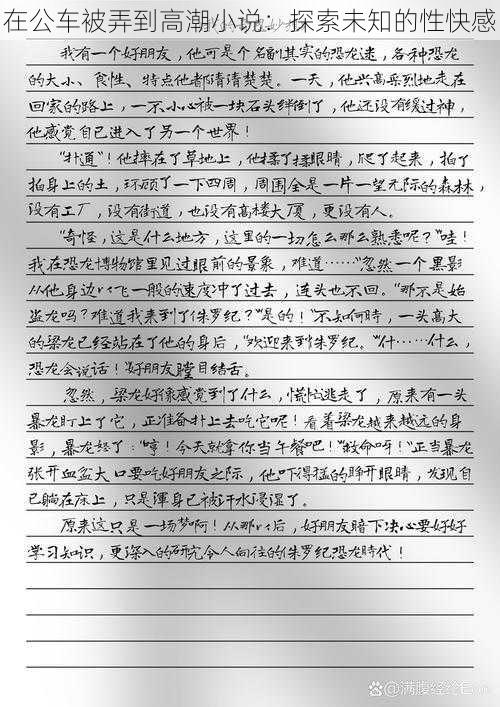 在公车被弄到高潮小说：探索未知的性快感
我有一个好朋友，他可是个名副其实的恐龙迷，各种恐龙
的大小、食性、特点他都清清楚楚。一天，他兴高采烈地走在
回家的路上，一不小心被一块石头绊倒了，他还没有缓过神，
他感觉自己进入了另一个世界！
"扑通"！他摔在了草地上，他揉了揉眼睛，爬了起来，拍了
拍身上的土，环顾了一下四周，周围全是一片一望无际的森林，
没有工厂，没有街道，也没有高楼大厦，更没有人。
"奇怪，这是什么地方，这里的一切怎么那么熟悉呢？"哇！
我在恐龙博物馆里见过眼前的景象，难道……"忽然一个黑影
从他身边以飞一般的速度冲了过去，连头也不回。"那不是始
盗龙吗？难道我来到了侏罗纪？"是的！"不知何時，一头高大
的梁龙已经站在了他的身后，"欢迎来到侏罗纪。"什……什么，
恐龙会说话！"好朋友瞠目结舌。
忽然，梁龙好像感觉到了什么，慌忙逃走了，原来有一头
暴龙盯上了它，正准备扑上去吃它呢！看着梁龙越来越远的身
影，暴龙怒了："哼！今天就拿你当午餐吧！"救命呀！"正当暴龙
张开血盆大口要吃好朋友之际，他吓得猛的睁开眼睛，发现自
己躺在床上，只是渾身已被汗水浸湿了。
原来这只是一场梦啊！从那以后，好朋友暗下决心要好好
学习知识，更深入的研究令人向往的侏罗纪恐龙時代！
满腹经纶